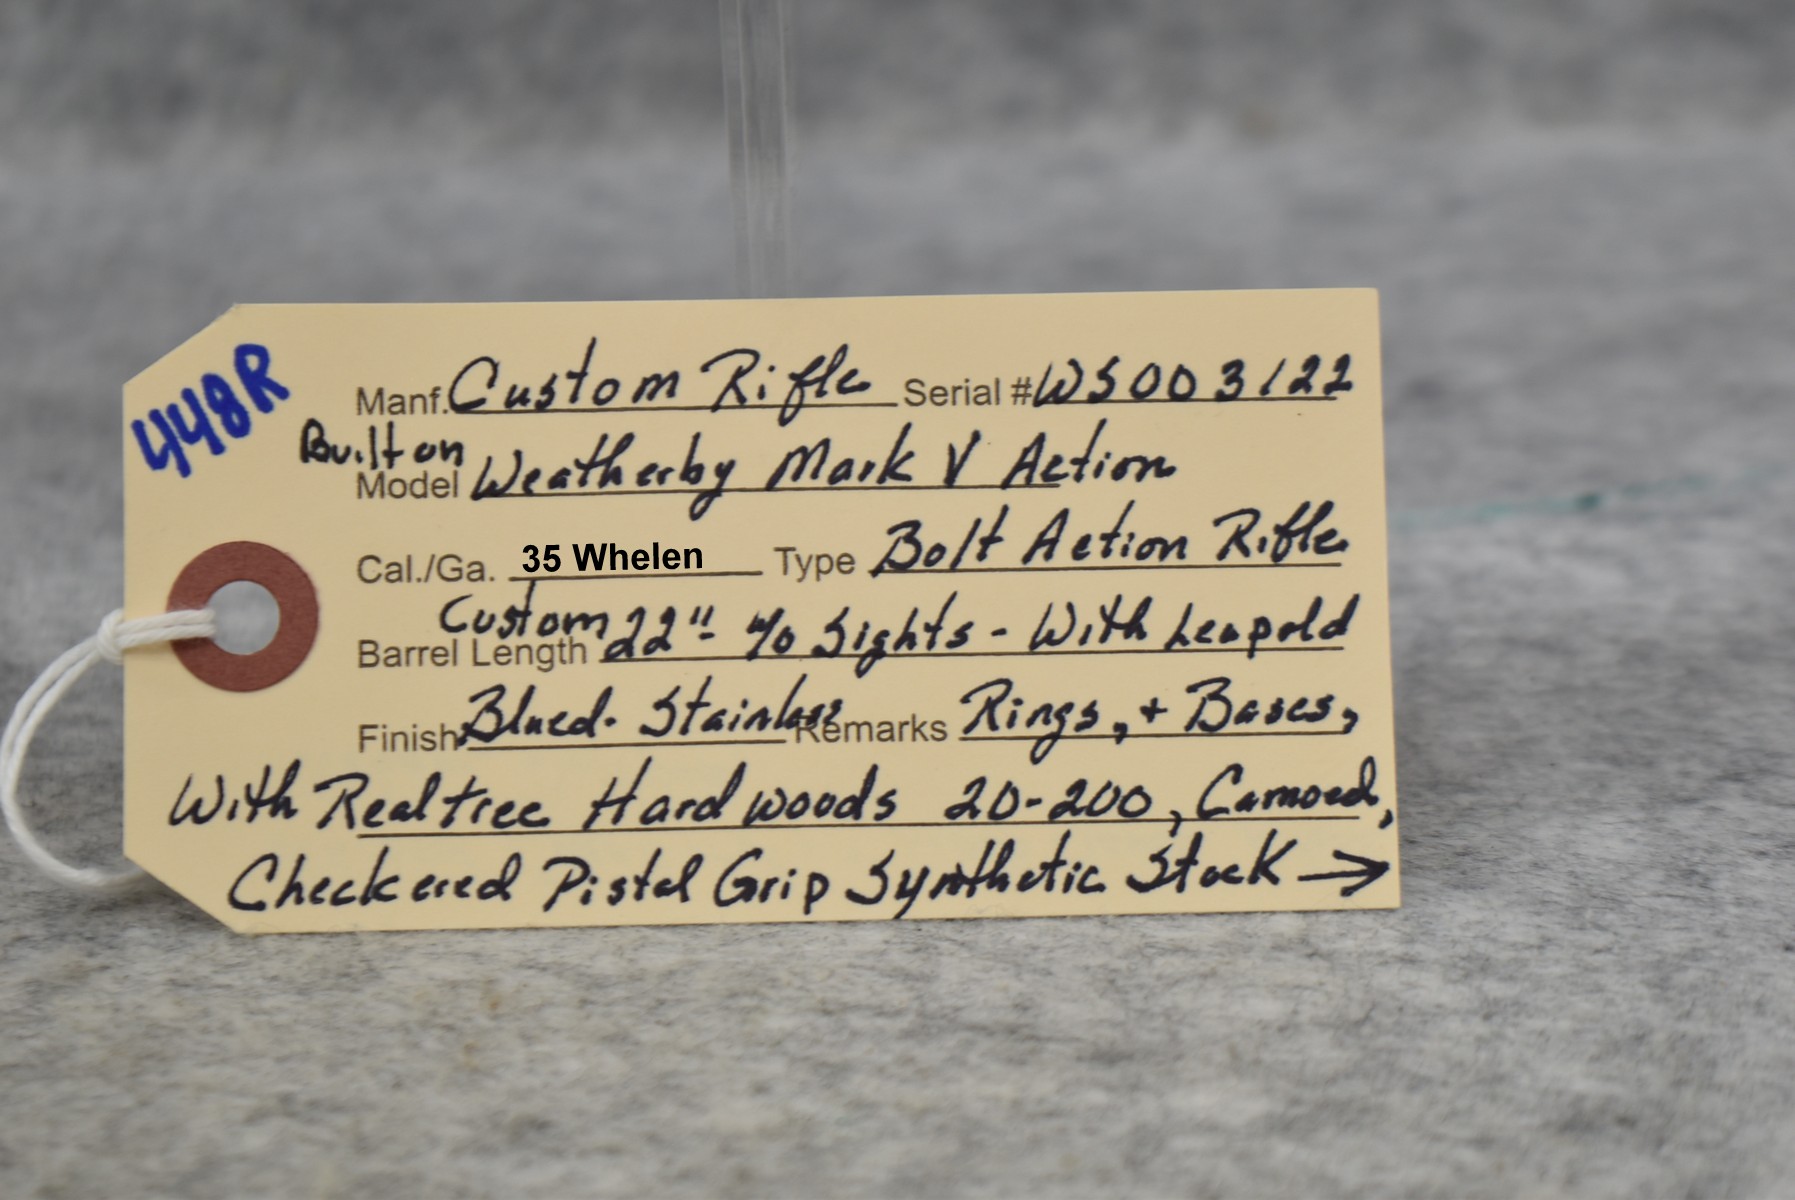 448R
Manf. Custom Rifle Serial # WS003122
Built on
Model Weatherby Mark V Action
Cal./Ga. 35 Whelen Type Bolt Action Rifle
Custom
Barrel Length 22" - w/o Sights - With Leupold
Finish Blued. Stainless Remarks Rings, + Bases,
With Realtree Hardwoods 20-200, Camoed,
Checkered Pistol Grip Synthetic Stock →